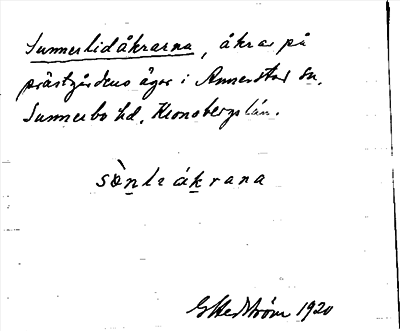 Sunnerlidåkrarna, åkrar på
prästgårdens ägor i Annerstad sn.
Sunnerbo hd, Kronobergs län.
sònleákrana
G Hedström 1920